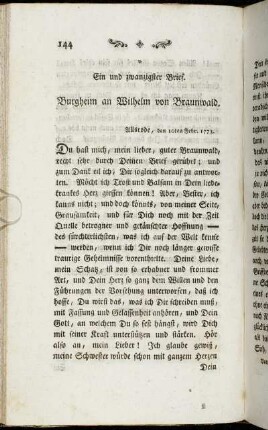 144
Ein und zwanzigster Brief.
Burgheim an Wilhelm von Braunwald.
Allisrode, den 10ten Febr. 1773.
Du hast mich, mein lieber, guter Braunwald,
recht sehr durch Deinen Brief gerührt; und
zum Dank eil ich, Dir sogleich darauf zu antwor-
ten. Möcht ich Trost und Balsam in Dein liebe-
krankes Herz giessen können! Aber, Bester, ich
kanns nicht; und doch könnts, von meiner Seite,
Grausamkeit, und für Dich noch mit der Zeit
Quelle betrogner und getäuschter Hoffnung —
des fürchterlichsten, was ich auf der Welt kenne
— werden, wenn ich Dir noch länger gewisse
traurige Geheimnisse vorenthielte. Deine Liebe,
mein Schatz, ist von so erhabner und frommer
Art, und Dein Herz so ganz dem Willen und den
Führungen der Vorsehung unterworfen, daß ich
hoffe, Du wirst das, was ich Dir schreiben muß,
mit Fassung und Gelassenheit anhören, und Dein
Gott, an welchem Du so fest hängst, wird Dich
mit seiner Kraft unterstützen und stärken. Hör
also an, mein Lieber! Ich glaube gewiß,
meine Schwester würde schon mit ganzem Herzen
Dein